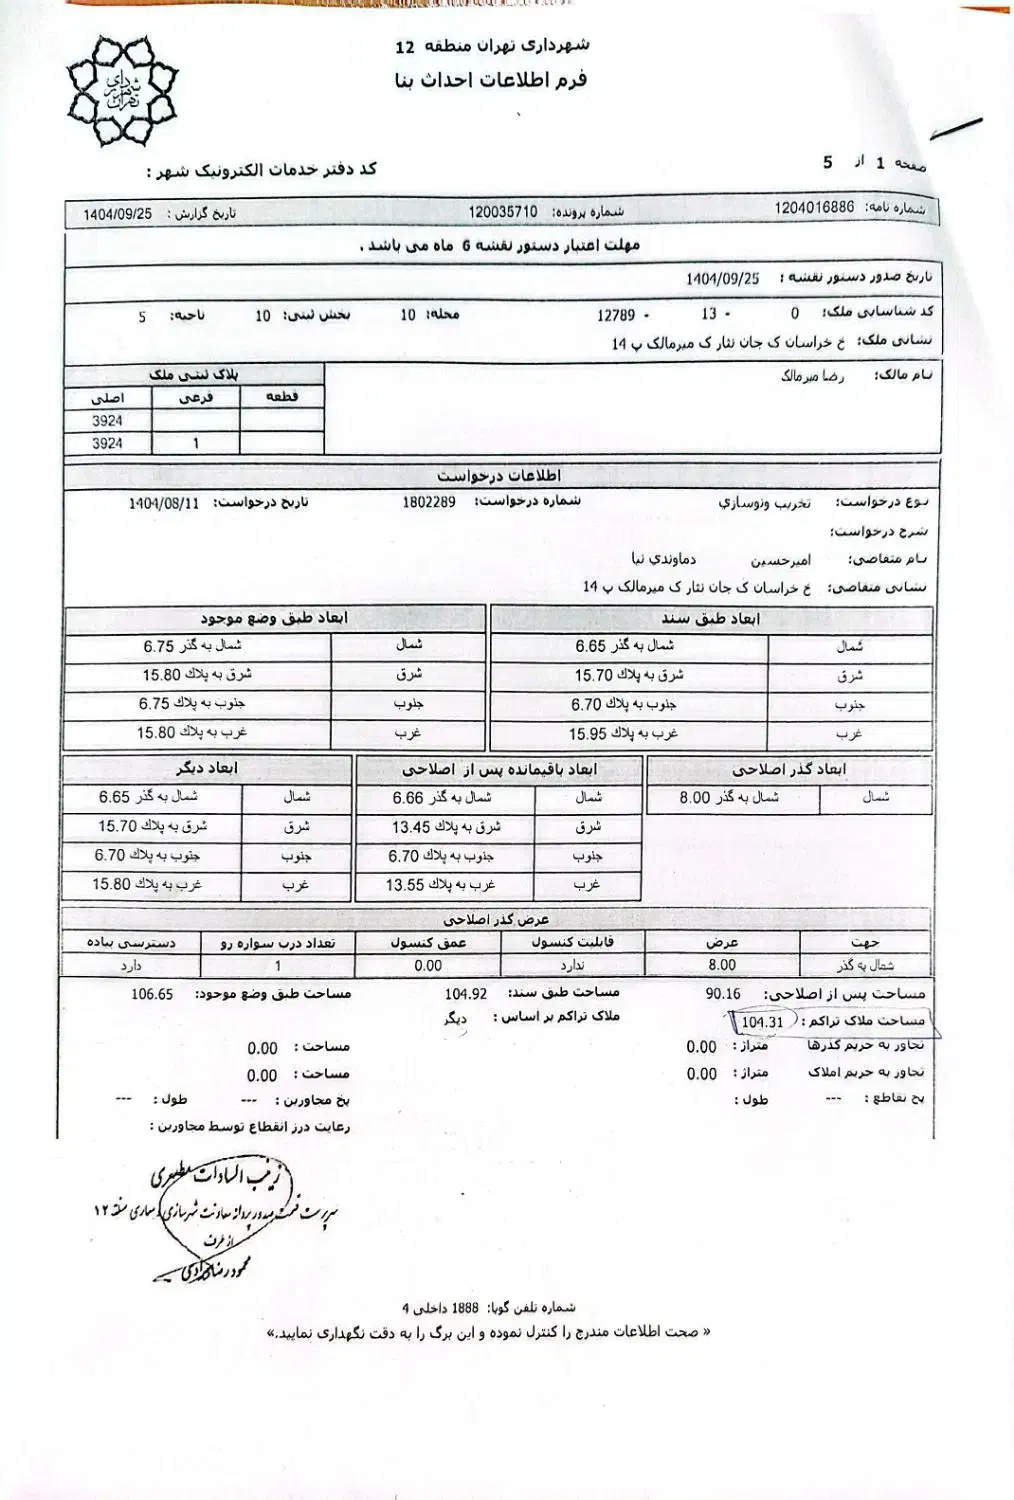 شهرداری تهران منطقه 12
فرم اطلاعات احداث بنا
شهرداری تهران
صفحه 1 از 5
کد دفتر خدمات الکترونیک شهر :
شماره نامه: 1204016886 شماره پرونده: 120035710 تاریخ گزارش : 1404/09/25
مهلت اعتبار دستور نقشه 6 ماه می باشد .
تاریخ صدور دستور نقشه : 1404/09/25
کد شناسایی ملک: 0 - 13 - 12789 محله: 10 بخش ثبتی: 10 ناحیه: 5
نشانی ملک: خ خراسان ک جان نثار ک میرمالک پ 14
نام مالک: رضا میرمالک
پلاک ثبتی ملک
قطعه فرعی اصلی
3924
1 3924
اطلاعات درخواست
نوع درخواست: تخریب ونوسازي شماره درخواست: 1802289 تاریخ درخواست: 1404/08/11
شرح درخواست:
نام متقاضی: امیرحسین دماوندي نیا
نشانی متقاضی: خ خراسان ک جان نثار ک میرمالک پ 14
ابعاد طبق سند
شمال شمال به گذر 6.65
شرق شرق به پلاك 15.70
جنوب جنوب به پلاك 6.70
غرب غرب به پلاك 15.95
ابعاد طبق وضع موجود
شمال شمال به گذر 6.75
شرق شرق به پلاك 15.80
جنوب جنوب به پلاك 6.75
غرب غرب به پلاك 15.80
ابعاد گذر اصلاحی
شمال شمال به گذر 8.00
ابعاد باقیمانده پس از اصلاحی
شمال شمال به گذر 6.66
شرق شرق به پلاك 13.45
جنوب جنوب به پلاك 6.70
غرب غرب به پلاك 13.55
ابعاد دیگر
شمال شمال به گذر 6.65
شرق شرق به پلاك 15.70
جنوب جنوب به پلاك 6.70
غرب غرب به پلاك 15.80
عرض گذر اصلاحی
جهت عرض قابلیت کنسول عمق کنسول تعداد درب سواره رو دسترسی پیاده
شمال به گذر 8.00 ندارد 0.00 1 دارد
مساحت پس از اصلاحی: 90.16 مساحت طبق سند: 104.92 مساحت طبق وضع موجود: 106.65
مساحت ملاک تراکم : 104.31 ملاک تراکم بر اساس : دیگر
تجاور به حریم گذرها متراژ : 0.00 مساحت : 0.00
تجاور به حریم املاک متراژ : 0.00 مساحت : 0.00
پخ تقاطع : --- طول : پخ مجاورین : --- طول : ---
رعایت درز انقطاع توسط مجاورین :
زینب السادات مطهری
سرپرست قسمت صدور پروانه معاونت شهرسازی و معماری منطقه ۱۲
از طرف
شماره تلفن گویا: 1888 داخلی 4
« صحت اطلاعات مندرج را کنترل نموده و این برگ را به دقت نگهداری نمایید.»